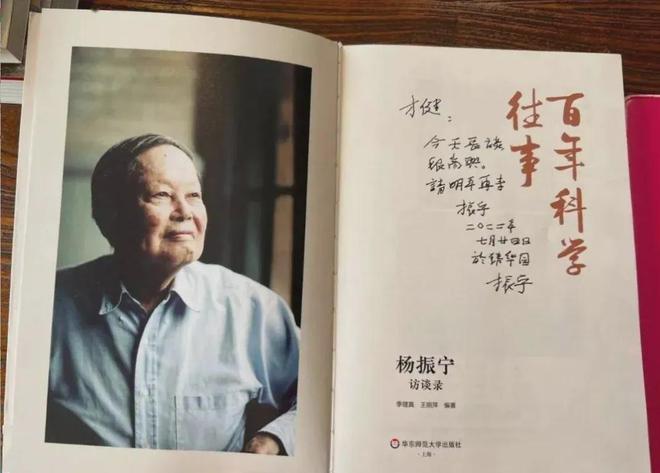 百年科学
往事
才健：
今天長談
很高興。
請明年再来
振宁
七月廿四日
於清华园
振宁
杨振宁
访谈录
季理真 王丽萍 编著
华东师范大学出版社
·上海·